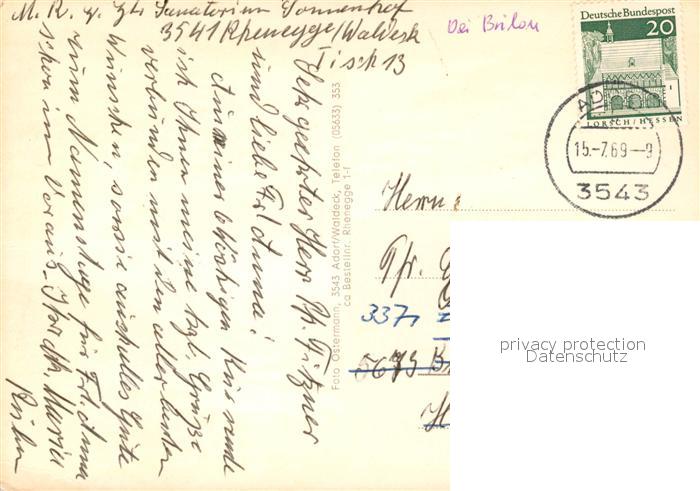 M. R. z. Zt. Sanatorium Sonnenhof
3541 Rhenegge/Waldeck
Tisch 13
Bei Brilon
Deutsche Bundespost
20
LORSCH/HESSEN
15.-7.69--9
3543
Sehr geehrter Herr Pf. Pitzner
und liebe Frl. Anna!
Aus meiner 6wöchigen Kur sende
ich Ihnen meine hzl. Grüße
verbunden mit den allerbesten
Wünschen, sowie auch alles Gute
zum Namenstage für Frl. Anna
schon im Voraus. Ihre Maria
Foto Ostermann, 3543 Adorf/Waldeck, Telefon (05633) 353
ca Bestellnr. Rhenegge 1-f
Herrn
Pfr.
337
5673 B
H
privacy protection
Datenschutz